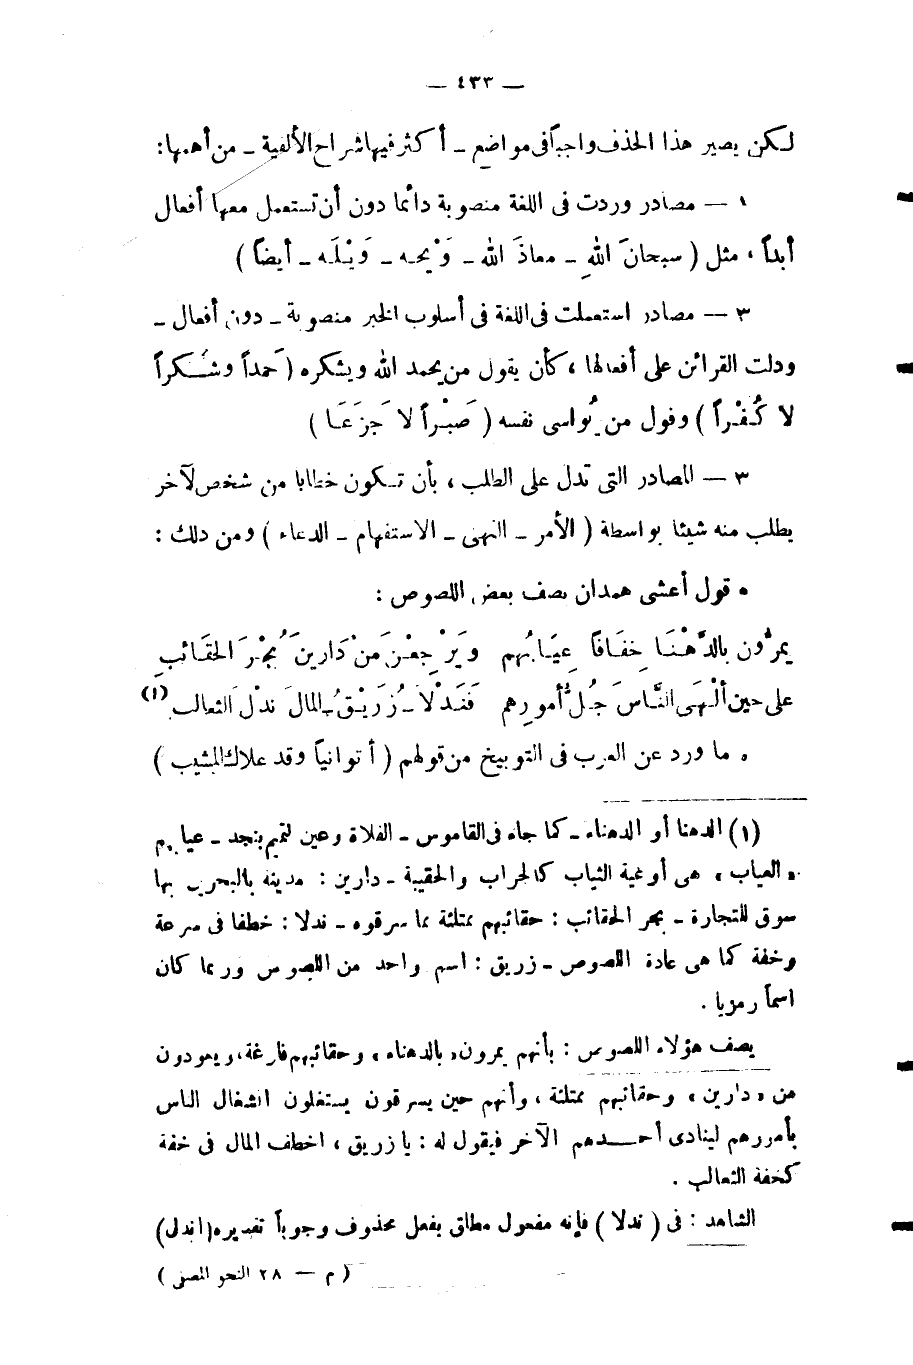 — ٤٣٣ —
لكن يصير هذا الحذف واجباً فى مواضع ـ أكثر فيها شراح الألفية ـ من أهمها:
١ — مصادر وردت فى اللغة منصوبة دائما دون أن تستعمل معها أفعال
أبداً ، مثل ( سبحانَ اللهِ ـ معاذَ الله ـ وَيْحه ـ وَيْلَه ـ أيضاً )
٣ — مصادر استعملت فى اللغة فى أسلوب الخبر منصوبة ـ دون أفعال ـ
ودلت القرائن على أفعالها ، كأن يقول من يحمد الله ويشكره ( حَمداً وشُكراً
لا كُفْراً ) وقول من يُواسى نفسه ( صَبْراً لا جَزَعَا )
٣ — المصادر التى تدل على الطلب ، بأن تكون خطابا من شخص لآخر
يطلب منه شيئا بواسطة ( الأمر ـ النهى ـ الاستفهام ـ الدعاء ) ومن ذلك :
• قول أعشى همدان يصف بعض اللصوص :
يمرُّون بالدَّهْنَا خِفَافاً عِيَابُهم ويَرْجِعْنَ مَنْ دَارِينَ بُجْرَ الحَقَائبِ
على حين ألْهَى النَّاسَ جُلُّ أمورِهم فَنَدْلا ـ زُرَيْقُ ـ المالَ نَدْلَ الثعالبِ (١)
• ما ورد عن العرب فى التوبيخ من قولهم ( أتوانياً وقد علاك المشيب )
(١) الدهنا أو الدهناء ـ كما جاء فى القاموس ـ الفلاة وعين لتميم بنجد ـ عيابهم
« العياب » هى أوعية الثياب كالجراب والحقيبة ـ دارين : مدينة بالبحرين بها
سوق للتجارة ـ بجر الحقائب : حقائبهم ممتلئة مما سرقوه ـ ندلا : خطفا فى سرعة
وخفة كما هى عادة اللصوص ـ زريق : اسم واحد من اللصوص وربما كان
اسماً رمزيا .
يصف هؤلاء اللصوص : بأنهم يمرون « بالدهناء » وحقائبهم فارغة ، ويعودون
من « دارين » وحقائبهم ممتلئة ، وأنهم حين يسرقون يستغلون انشغال الناس
بأمورهم لينادى أحـــدهم الآخر فيقول له : يا زريق ، اخطف المال فى خفة
كخفة الثعالب .
الشاهد : فى ( ندلا ) فإنه مفعول مطلق بفعل محذوف وجوباً تقديره ( اندل )
( م — ٢٨ النحو المصفى )